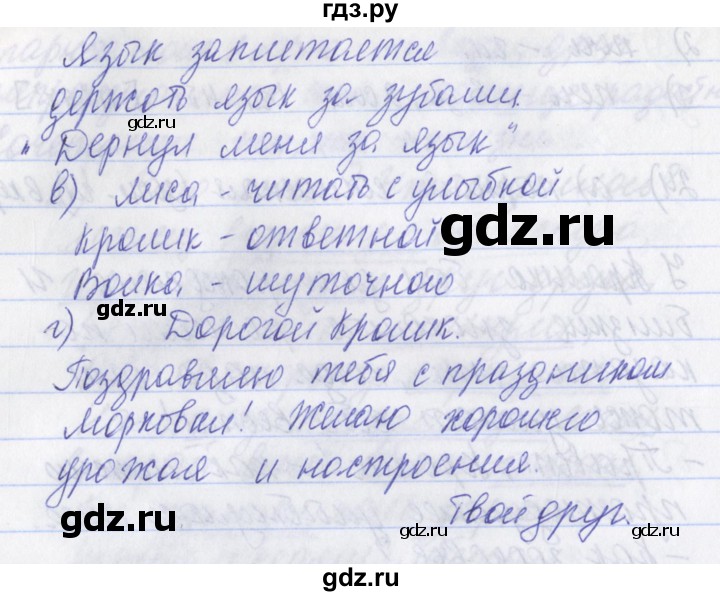 гдз.ру
Язык заплетается
держать язык за зубами.
gdz.ru
gdz.ru
„Дернул меня за язык"
в) лиса - читать с улыбкой
Кролик - ответной
gdz.ru
Волка - шуточного
gdz.ru
г) Дорогой Кролик.
Поздравляю тебя с праздником
Морковки! Желаю хорошего
урожая и настроения.
Твой друг.
gdz.ru
gdz.ru
gdz.ru
gdz.ru